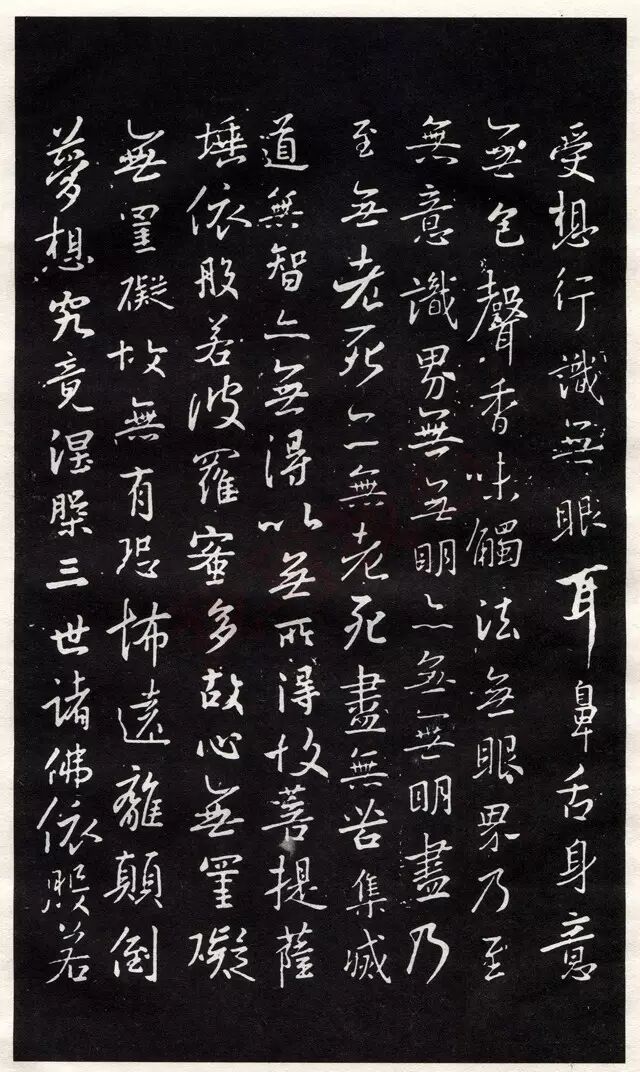 受想行識無眼耳鼻舌身意
無色聲香味觸法無眼界乃至
無意識界無無明亦無無明盡乃
至無老死亦無老死盡無苦集滅
道無智亦無得以無所得故菩提薩
埵依般若波羅蜜多故心無罣礙
無罣礙故無有恐怖遠離顛倒
夢想究竟涅槃三世諸佛依般若